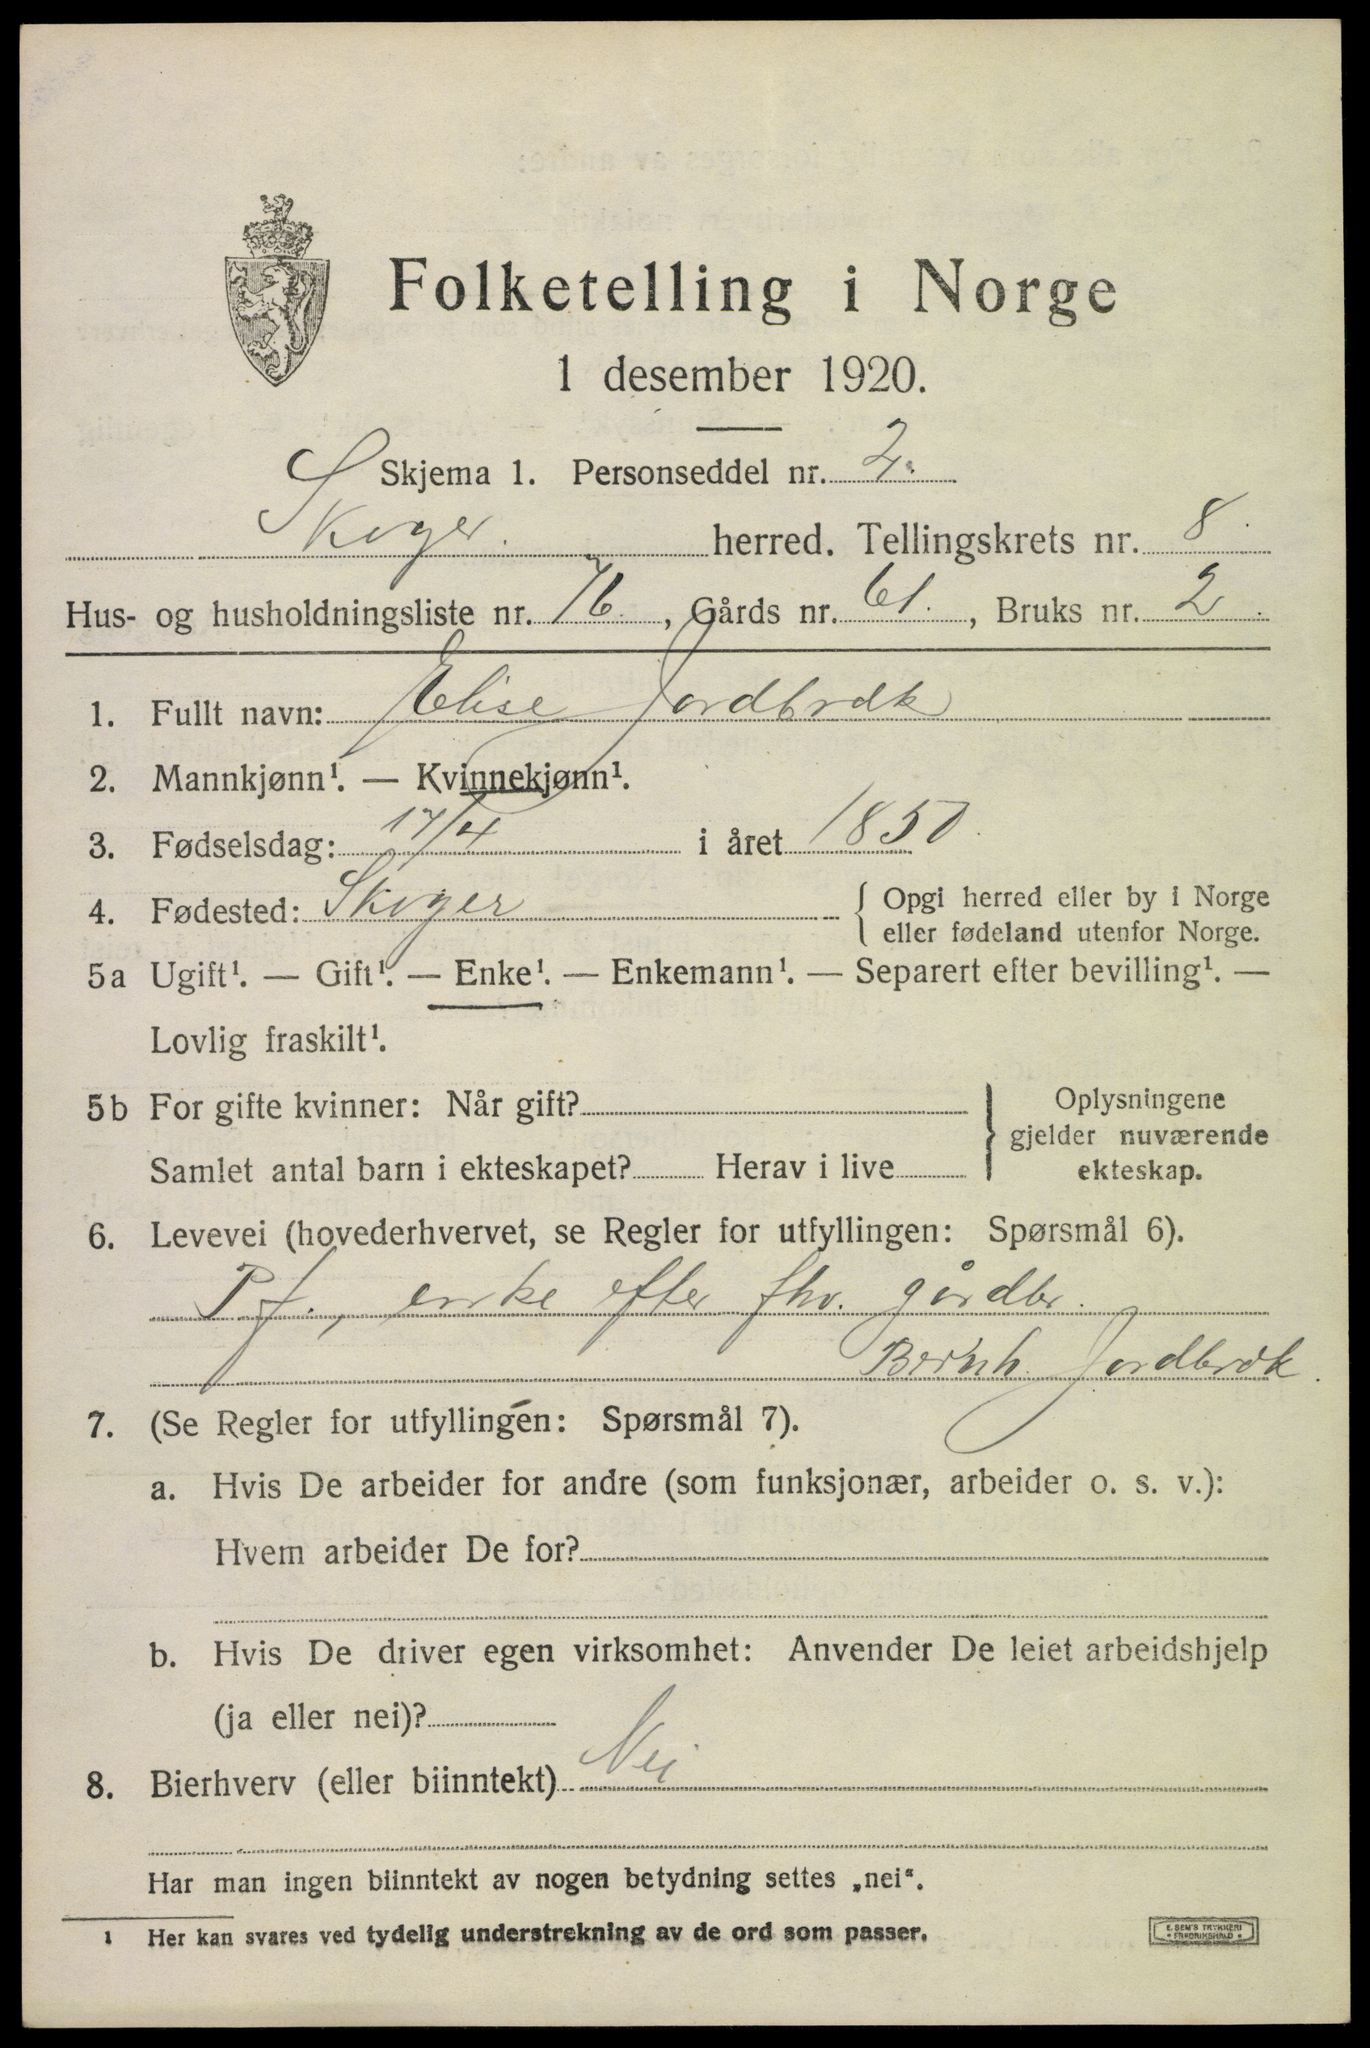 Folketelling i Norge
1 desember 1920.
Skjema 1. Personseddel nr. 2.
Skoger. herred. Tellingskrets nr. 8.
Hus- og husholdningsliste nr. 76., Gårds nr. 61., Bruks nr. 2.
1. Fullt navn: Elise Jordbrek
2. Mannkjønn¹. — Kvinnekjønn¹.
3. Fødselsdag: 17/4 i året 1850.
4. Fødested: Skoger { Opgi herred eller by i Norge
eller fødeland utenfor Norge.
5a Ugift¹. — Gift¹. — Enke¹. — Enkemann¹. — Separert efter bevilling¹. —
Lovlig fraskilt¹.
5b For gifte kvinner: Når gift? } Oplysningene
gjelder nuværende
Samlet antal barn i ekteskapet? Herav i live ekteskap.
6. Levevei (hovederhvervet, se Regler for utfyllingen: Spørsmål 6).
P f., enke efter fhv. gårdbr.
Bernh. Jordbrek.
7. (Se Regler for utfyllingen: Spørsmål 7).
a. Hvis De arbeider for andre (som funksjonær, arbeider o. s. v.):
Hvem arbeider De for?
b. Hvis De driver egen virksomhet: Anvender De leiet arbeidshjelp
(ja eller nei)?
8. Bierhverv (eller biinntekt) Nei
Har man ingen biinntekt av nogen betydning settes „nei“.
1 Her kan svares ved tydelig understrekning av de ord som passer.
E. SEM'S TRYKKERI
FREDRIKSHALD